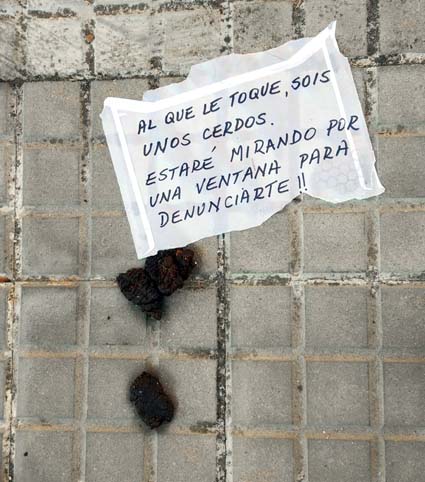 AL QUE LE TOQUE, SOIS
UNOS CERDOS.
ESTARÉ MIRANDO POR
UNA VENTANA PARA
DENUNCIARTE!!